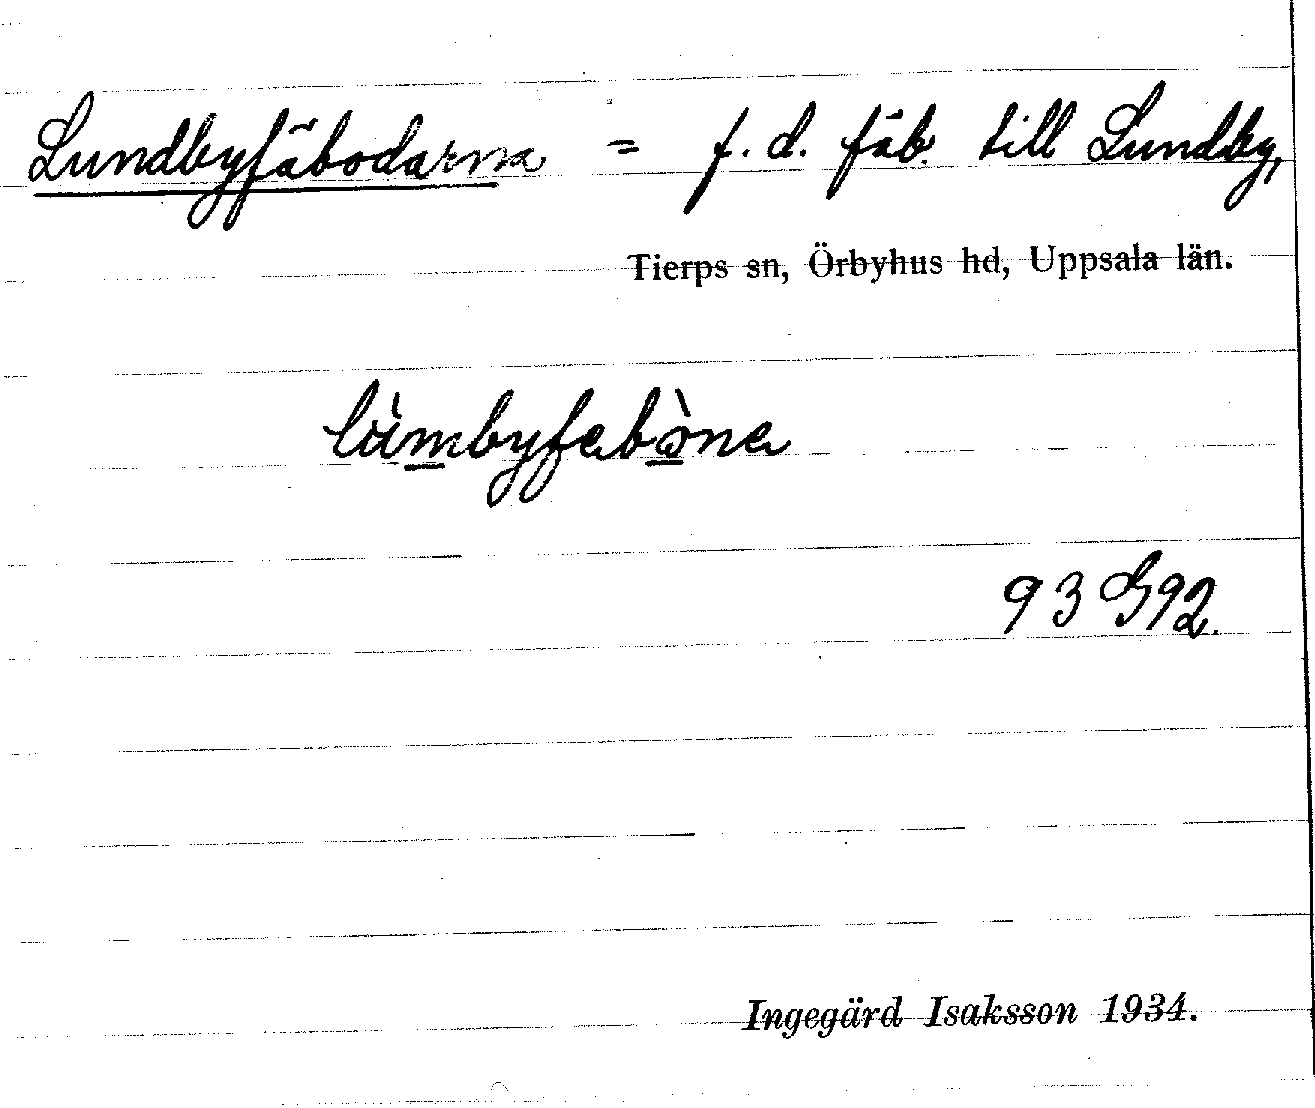 Lundbyfäbodarna = f. d. fäb. till Lundby,
Tierps sn, Örbyhus hd, Uppsala län.
lùmbyfebòna
93 G92.
Ingegärd Isaksson 1934.